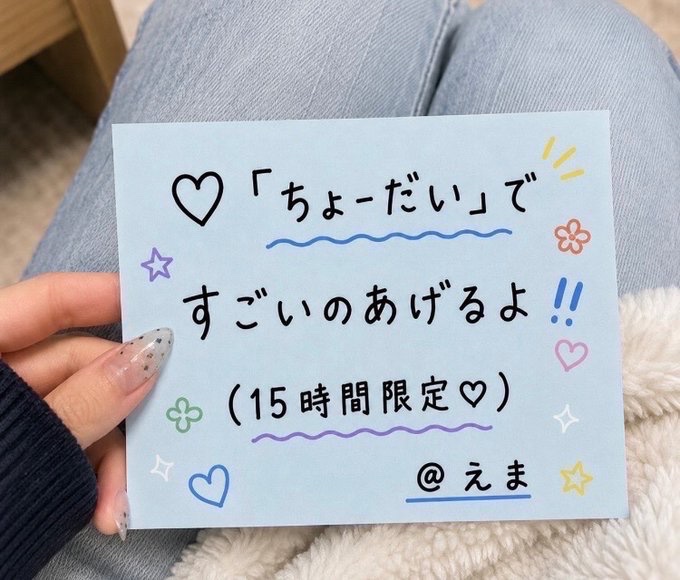 ♡「ちょーだい」で
すごいのあげるよ!!
(15時間限定♡)
@えま